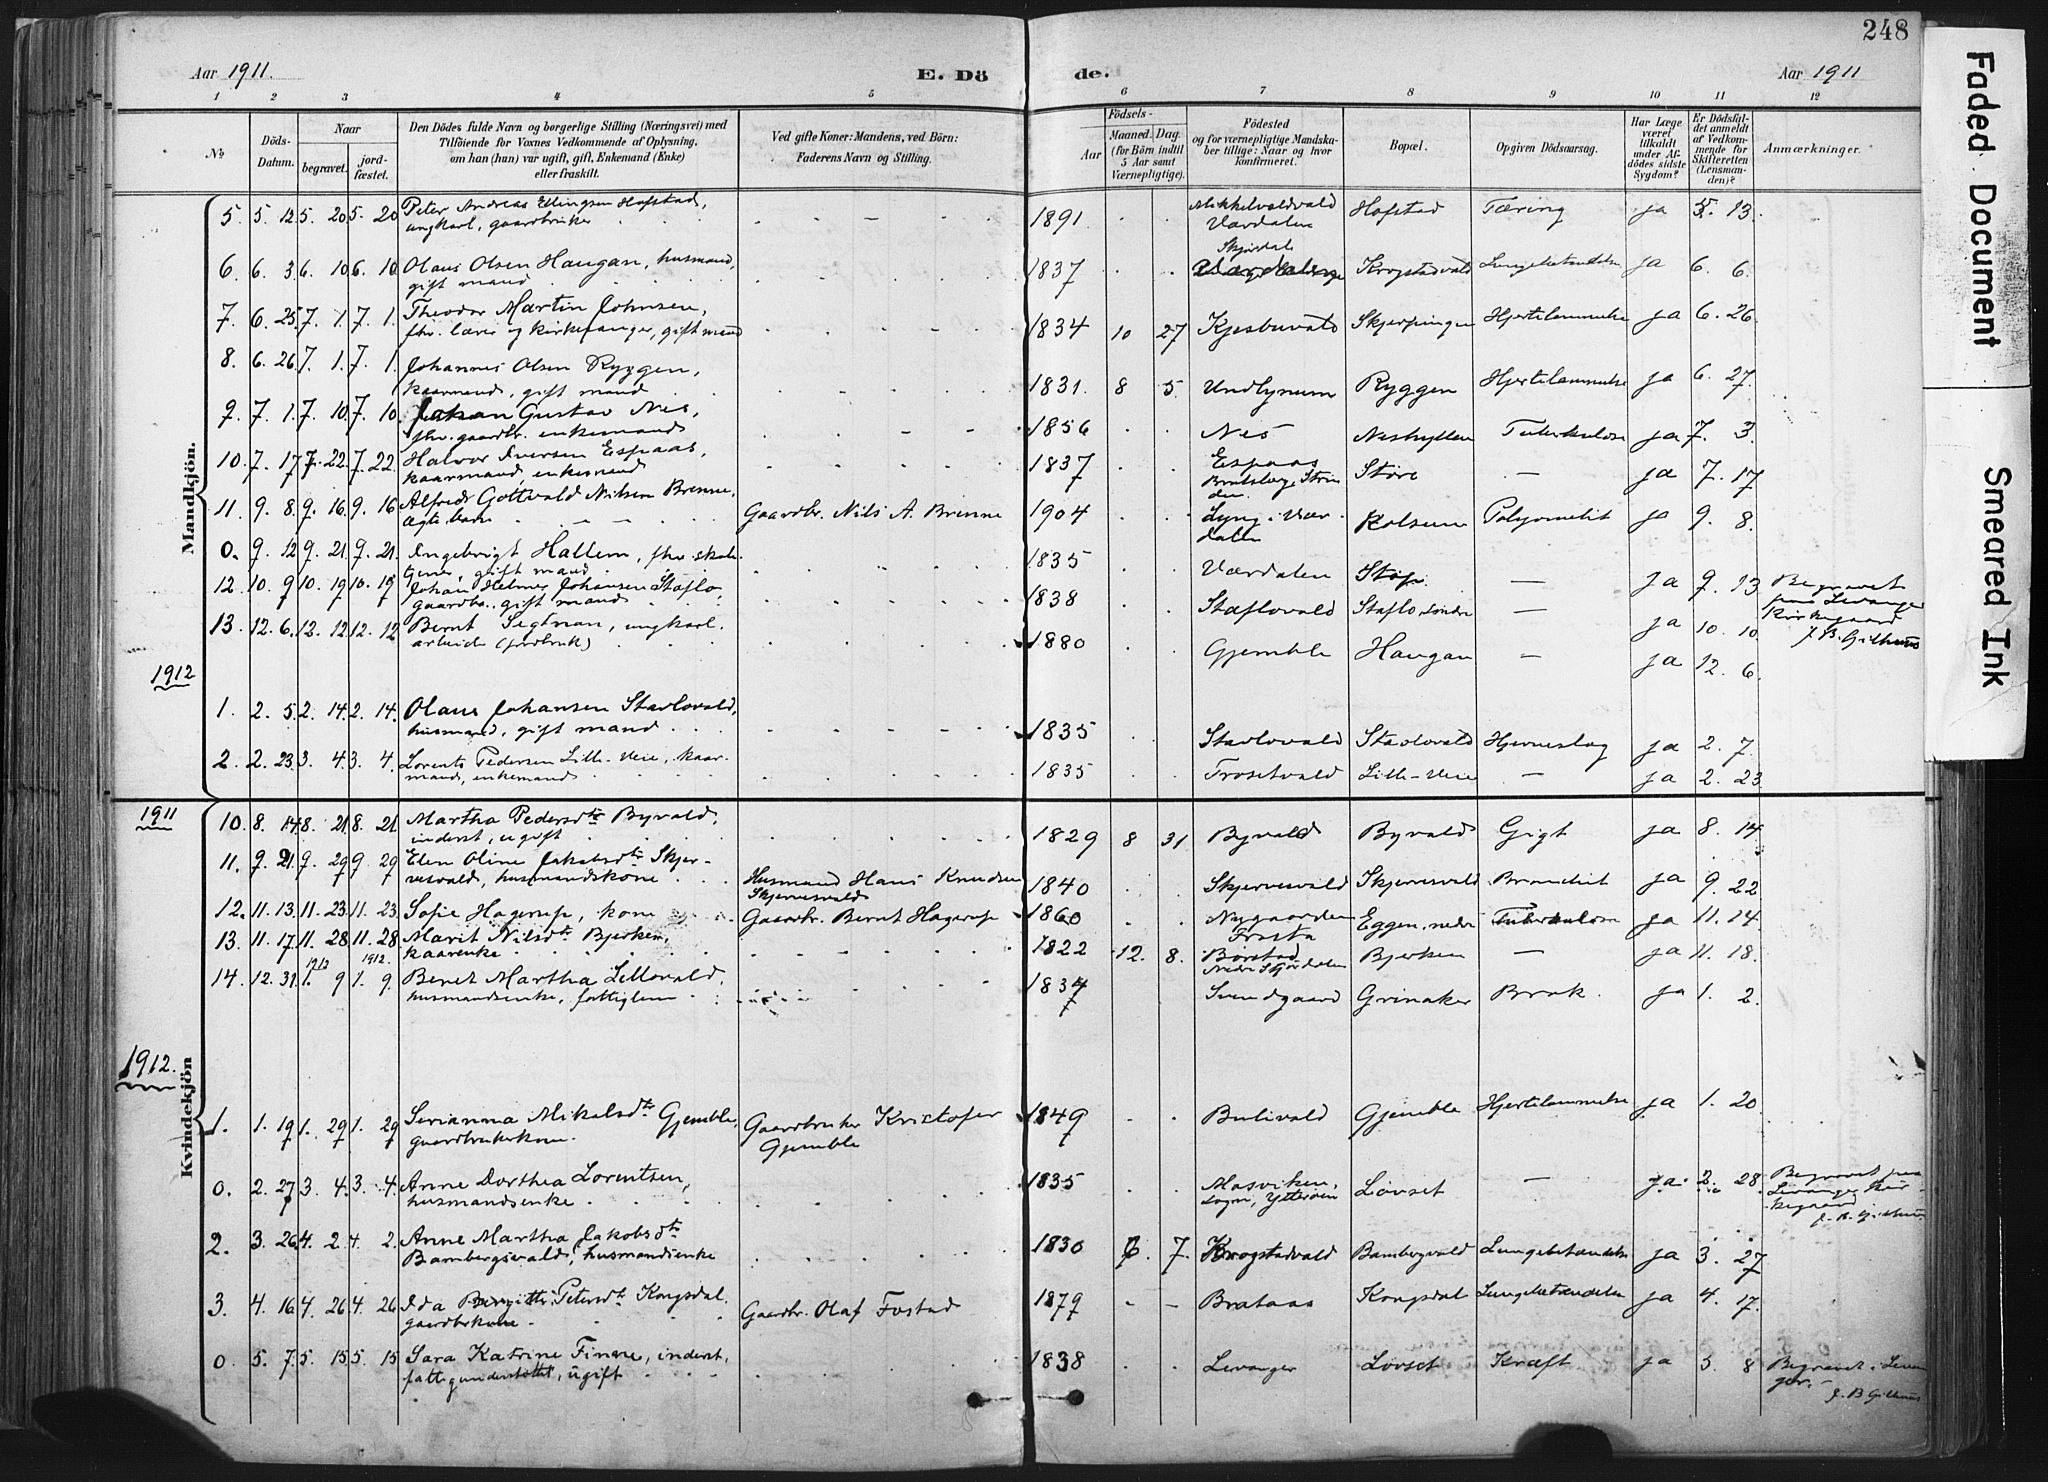 248
Aar 1911.
E. Dö
de.
Aar 1911
1 2 3 4 5 6 7 8 9 10 11 12
No
Döds-Datum.
Naar
begravet.
jordfæstet.
Den Dödes fulde Navn og borgerlige Stilling (Næringsvei) med
Tilföiende for Voxnes Vedkommende af Oplysning,
om han (hun) var ugift, gift, Enkemand (Enke)
eller fraskilt.
Ved gifte Koner: Mandens, ved Börn:
Faderens Navn og Stilling.
Födsels-
Aar
Maaned. Dag.
(for Börn indtil
5 Aar samt
Værnepligtige).
Födested
og for værnepligtige Mandska-
ber tillige: Naar og hvor
konfirmeret.
Bopæl.
Opgiven Dödsaarsag.
Har Læge
været
tilkaldt
under Af-
dödes sidste
Sygdom?
Er Dödsfal-
det anmeldt
af Vedkom-
mende for
Skifteretten
(Lensman-
den)?
Anmærkninger.
Mandkjön.
5. 5. 12. 5. 20. 5. 20 Peter Andreas Ellingsen Hofstad, ungkarl, gaardbruker 1891 Mikkelvoldvald Værdalen Hofstad Tæring ja 5. 13.
6. 6. 3. 6. 10. 6. 10. Olaus Olsen Haugan, husmand, gift mand 1837 Skjørdal Krogstadvald Lungebetændelse ja 6. 6.
7. 6. 25. 7. 1. 7. 1. Theodor Martin Johnsen, fhv. lærer og kirkesanger, gift mand 1834 10 27 Kjesbuvald Skjerpingen Hjertelammelse ja 6. 26.
8. 6. 26. 7. 1. 7. 1. Johannes Olsen Ryggen, kaarmand, gift mand 1831. 8 5. Undlynum Ryggen Hjertelammelse ja 6. 27.
9. 7. 1. 7. 10. 7. 10. Johan Gustav Nes, fhv. gaardbr. enkemand 1856 Nes Neshyllen Tuberkulose ja 7. 3.
10. 7. 17. 7. 22. 7. 22. Halvor Iversen Espaas, kaarmand, enkemand 1837 Espaas Bratsberg, Strinden. Støre — ja 7. 17
11. 9. 8. 9. 16. 9. 16 Alfred Gottvald Nilsen Brenne, ægte barn Gaardbr. Nils A. Brenne 1904 Lyng i Værdalen Kolsum Polyomelit ja 9. 8.
0. 9. 12. 9. 21. 9. 21. Ingebrigt Hallem, fhv. skole, gift mand 1835 Værdalen Støp. — ja 9. 13 Begravet paa Levanger Kirkegaard J. B. Gilhuus
12. 10. 9. 10. 19. 10. 19 Johan Helmer Johansen Staflo gaardbr., gift mand 1838 Staflovald Staflo, søndre — ja 10. 10.
13. 12. 6. 12. 12. 12. 12 Bernt Segtnan, ungkarl, arbeider (jordbruk) 1880 Gjemble Haugan — ja 12. 6.
1912
1. 2. 5. 2. 14. 2. 14. Olaus Johansen Stavlovald, husmand, gift mand 1835 Stavlovald Stavlovald Hjerneslag ja 2. 7.
2. 2. 23. 3. 4. 3. 4. Lorents Pedersen Lille-Veie, kaarmand, enkemand 1835 Trosetvald Lille-Veie — ja 2. 23
1911
Kvindekjön
10. 8. 14. 8. 21. 8. 21. Martha Pedersdtr Byvald, inderst, ugift 1829 8 31 Byvald Byvald Gigt ja 8. 14.
11. 9. 21. 9. 29. 9. 29 Elen Oline Jakobsdtr Skjervesvald, husmandskone Husmand Hans Knudsen Skjervesvald 1840 Skjervesvald Skjervesvald ja 9. 22
12. 11. 13. 11. 23. 11. 23. Sofie Hagerup, kone Gaardbr. Bernt Hagerup 1860 Nygaarden Frosta Eggen, nedre Tuberkulose ja 11. 14
13. 11. 17. 11. 28. 11. 28 Marit Nilsdtr Bjerken, kaarenke 1822 12. 8. Borstad Nedre Stjørdalen Bjerken — ja 11. 18.
1912 1912.
14. 12. 31. 1. 9. 1. 9. Beret Martha Lillevald, husmandsenke, fattiglem 1837 Svendgaard Grinaker Brok. ja 1. 2.
1912.
1. 1. 19. 1. 29. 1. 29 Serianna Mikalsdtr Gjemble, gaardbrukerkone. Gaardbruker Kristofer Gjemble 1849 Bulivald Gjemble Hjertelammelse ja 1. 20
0. 2. 27. 3. 4. 3. 4. Anne Dorthea Lorentsen, husmandsenke 1835 Mosviken, sogn, Ytterøen Løvset — ja. 2. 28. Begravet paa Levanger Kirkegaard J. B. Gilhuus
2. 3. 26. 4. 2. 4. 2. Anne Martha Jakobsdtr Bambergsvald, husmandsenke 1830 6. 7. Krogstadvald Bambergvald Lungebetændelse ja 3. 27
3. 4. 16. 4. 26. 4. 26 Ida Birgitte Petersdtr Kongsdal, gaardbrkone Gaardbr. Olaf Fostad 1879 - - Brataas Kongsdal Lungebetændelse ja 4. 17.
0. 5. 7. 5. 15. 5. 15 Sara Katrine Finne, inderst, fattigunderstøttet, ugift 1838 Levanger Løvset Kræft ja 5. 8 Begravet i Levanger. J. B. Gilhuus
Faded Document
Smeared Ink